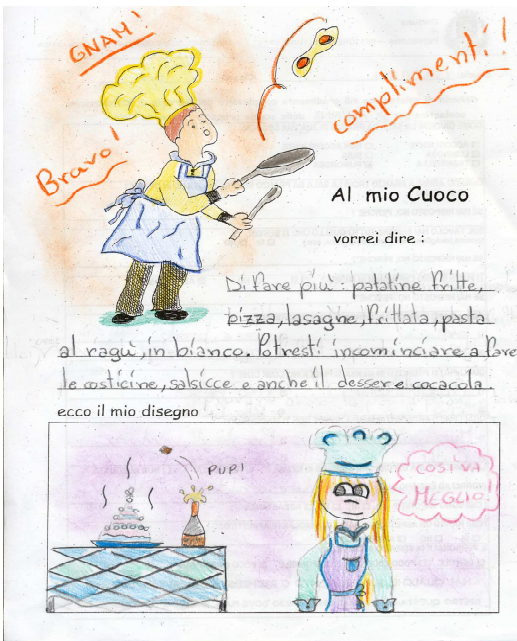 GNAM!
complimenti!
Bravo!
Al mio Cuoco
vorrei dire :
Di fare più: patatine fritte,
pizza, lasagne, frittata, pasta
al ragù, in bianco. Potresti incominciare a fare
le costicine, salsicce e anche il desser e cocacola.
ecco il mio disegno
PUP!
COSÌ VA
MEGLIO!